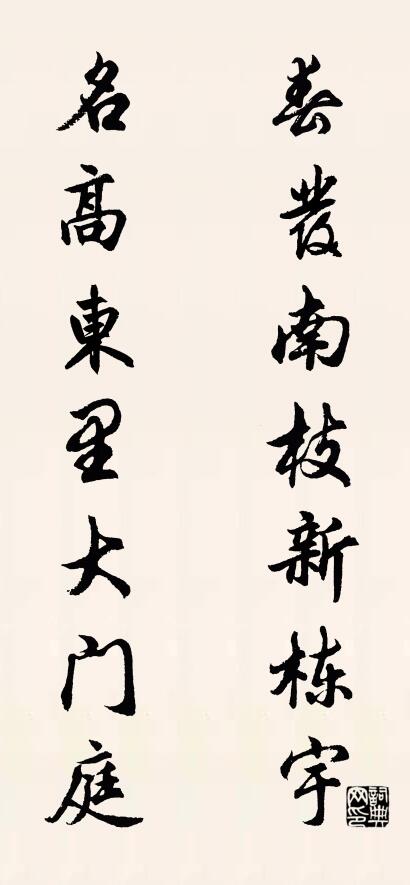 春發南枝新栋宇
名高東里大门庭
詞典网印